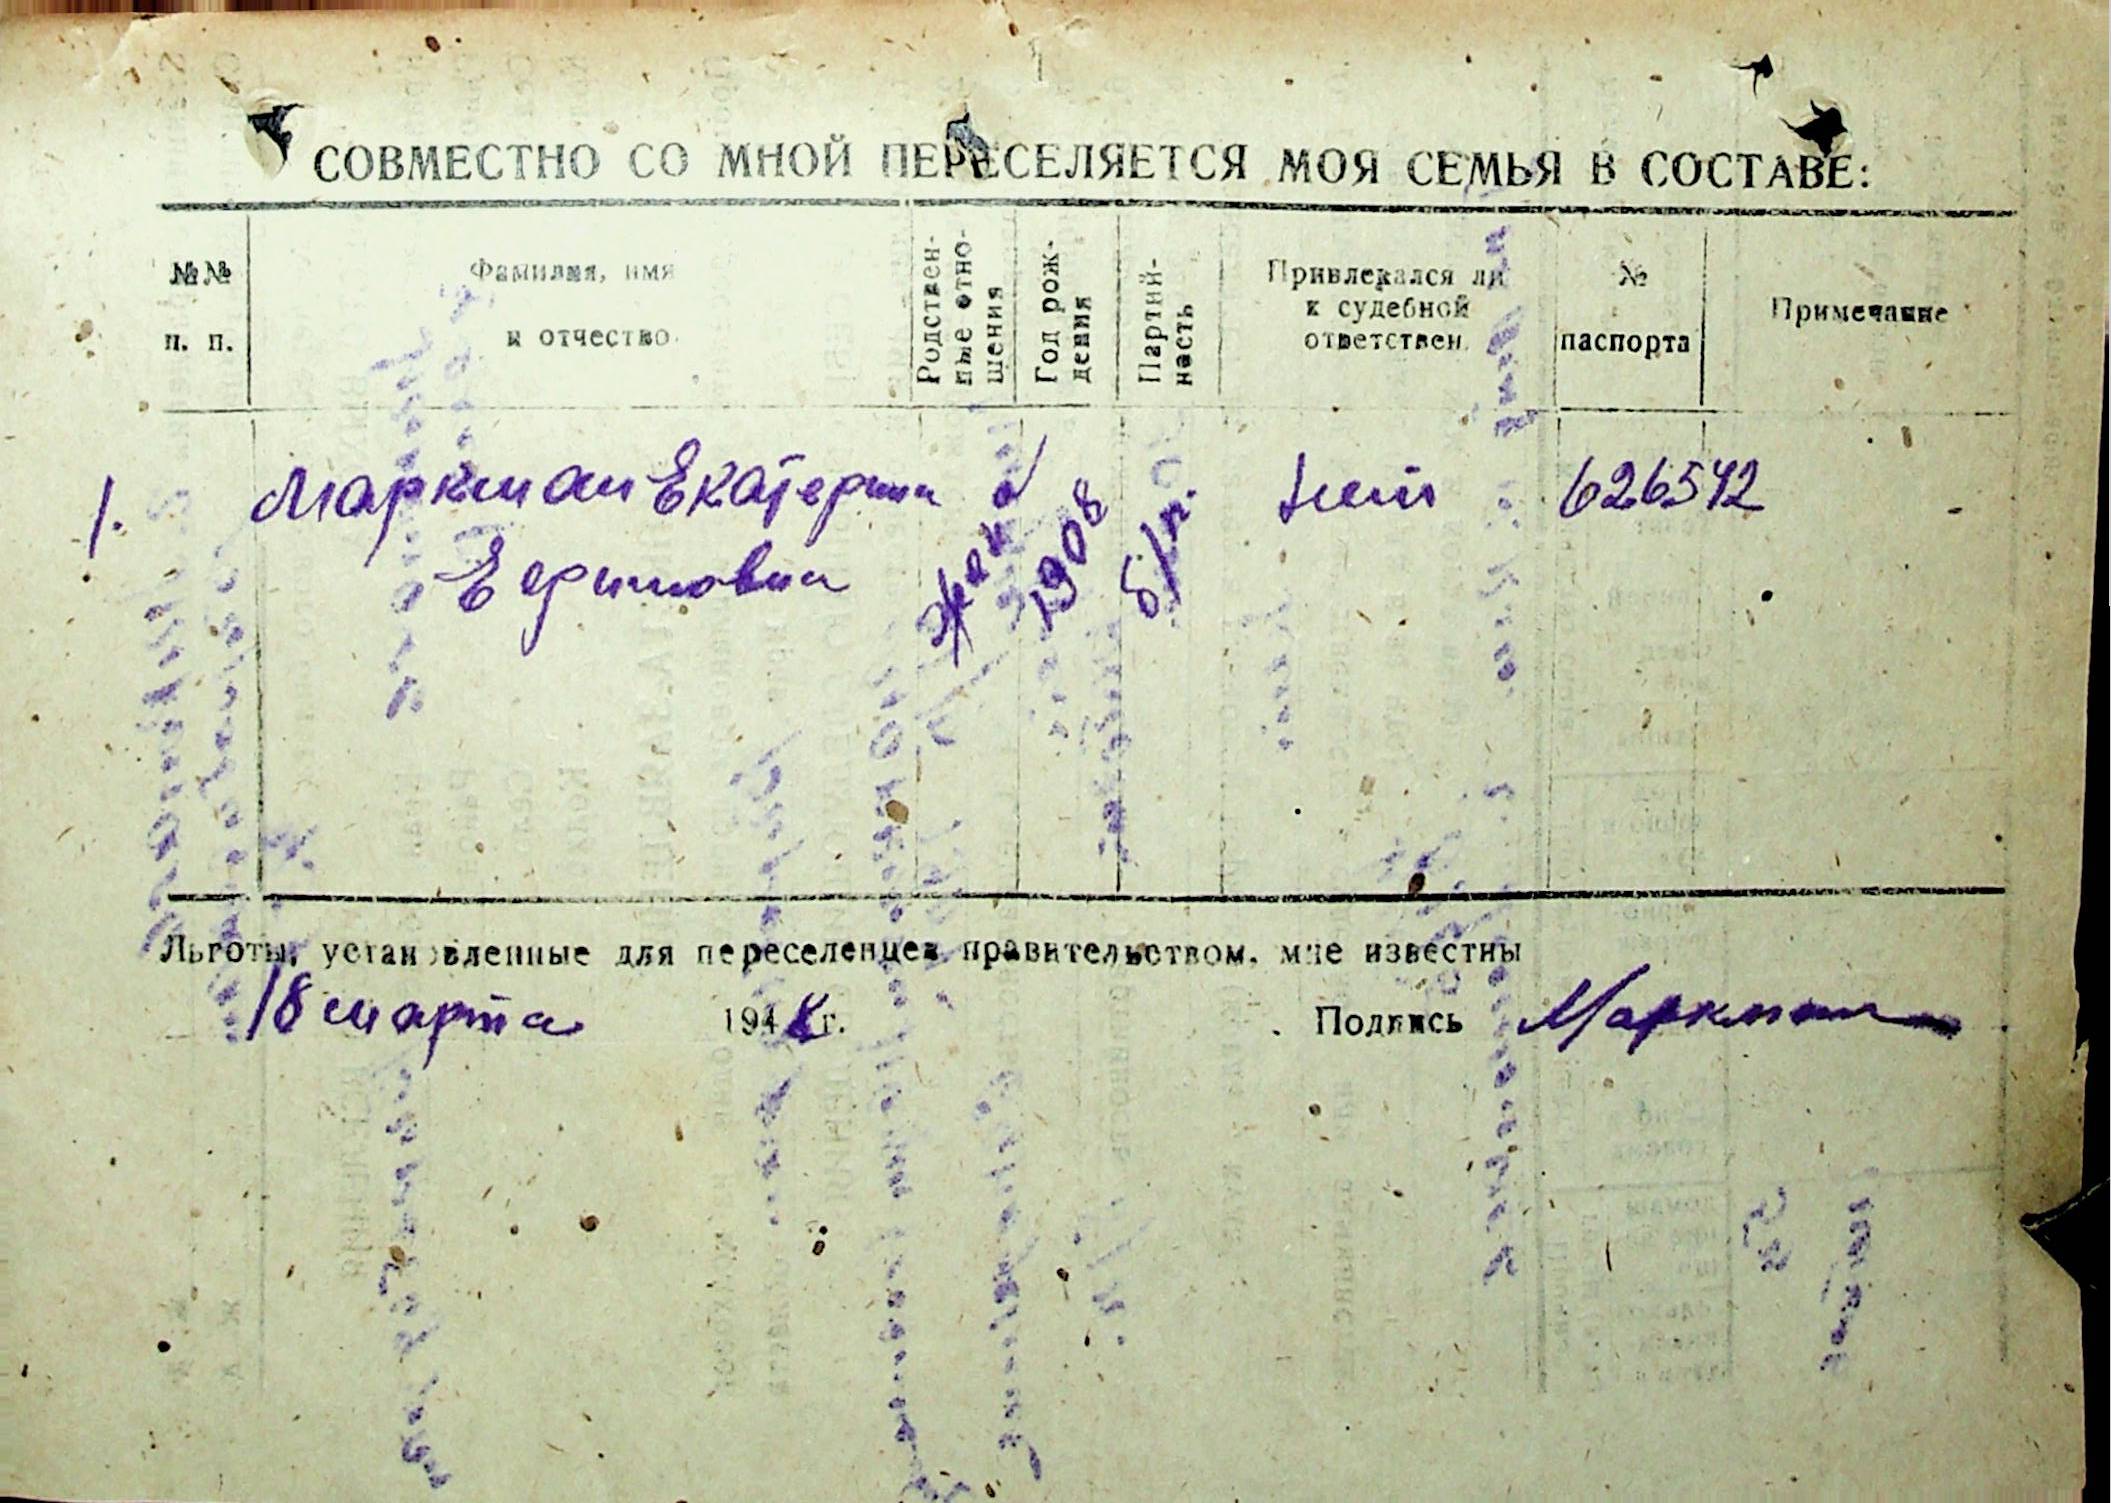 СОВМЕСТНО СО МНОЙ ПЕРЕСЕЛЯЕТСЯ МОЯ СЕМЬЯ В СОСТАВЕ:
№№ п. п.
Фамилия, имя и отчество
Родствен-
ные отно-
шения
Год рож-
дения
Партий-
ность
Привлекался ли
к судебной
ответствен.
№
паспорта
Примечание
1. Маркман Екатерина жена 1908 б/п. нет 626542
Ефимовна
Льготы, установленные для переселенцев правительством, мне известны
18 марта 1948 г. Подпись Маркман